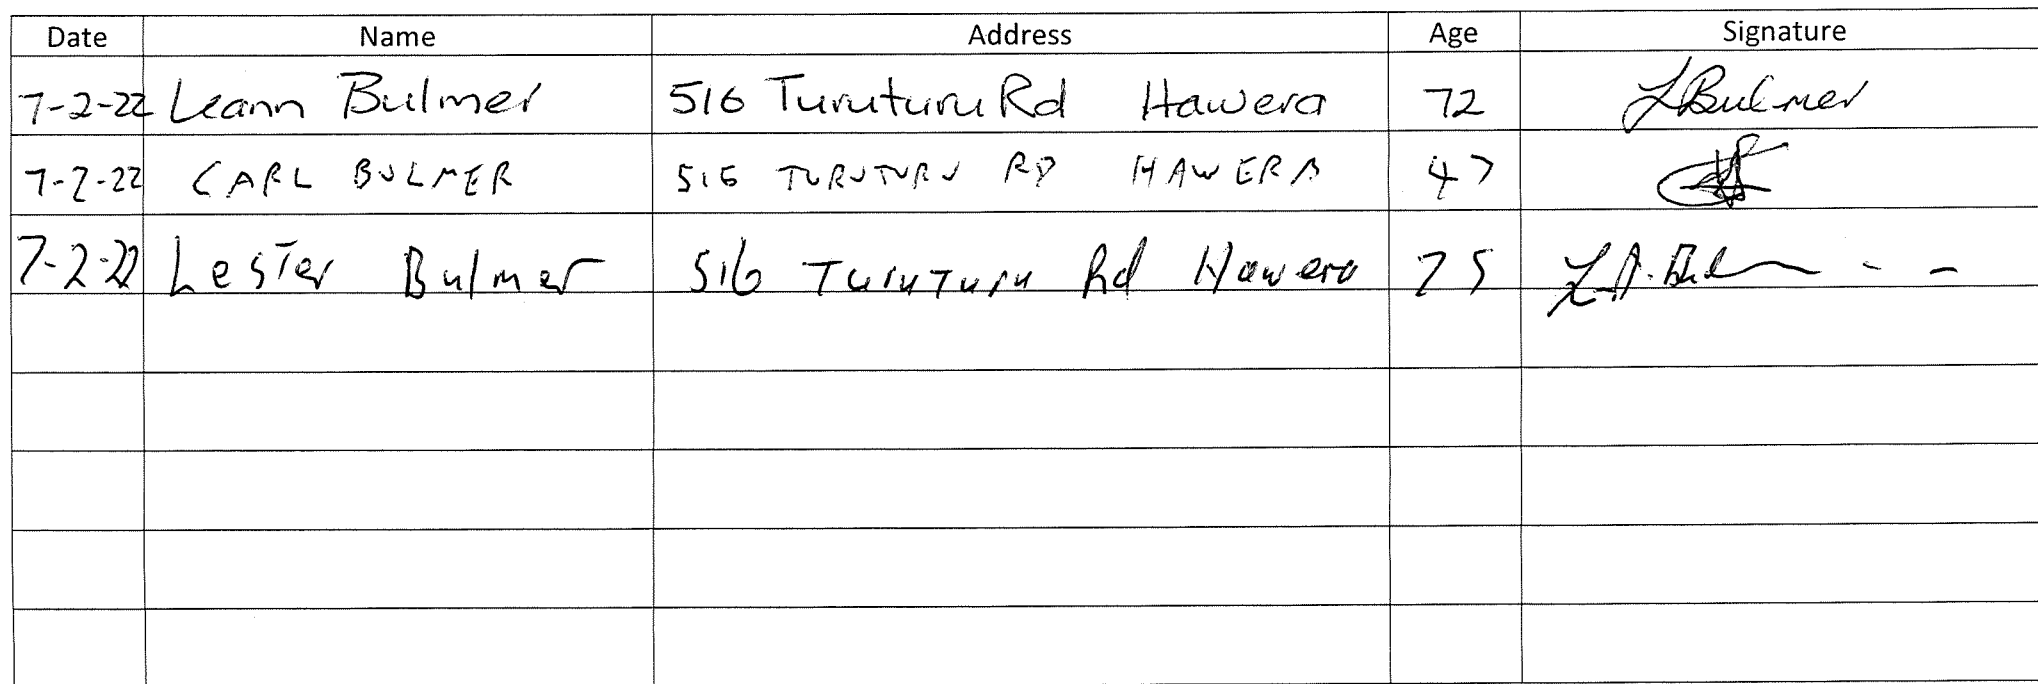 Date Name Address Age Signature
7-2-22 Leann Bulmer 516 Turuturu Rd Hawera 72 L Bulmer
7-2-22 CARL BULMER 516 TURUTURU RD HAWERA 47
7-2-22 Lester Bulmer 516 Turuturu Rd Hawera 75